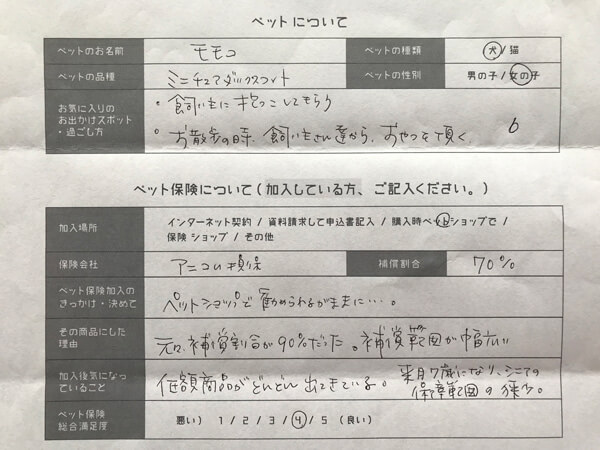 ペットについて
ペットのお名前 モモコ ペットの種類 犬 / 猫
ペットの品種 ミニチュアダックスフント ペットの性別 男の子 / 女の子
お気に入りの
お出かけスポット
・過ごし方
・飼い主に抱っこしてもらう
・お散歩の時、飼い主さん達から、おやつを頂く。
ペット保険について(加入している方、ご記入ください。)
加入場所 インターネット契約 / 資料請求して申込書記入 / 購入時ペットショップで /
保険 ショップ / その他
保険会社 アニコム損保 補償割合 70%
ペット保険加入の
きっかけ・決めて
ペットショップで勧められるがままに…。
その商品にした
理由
元々、補償割合が90%だった。補償範囲が幅広い
加入後気になっ
ていること
低額商品がどんどん出てきている。
来月7歳になり、シニアの
保障範囲の狭少。
ペット保険
総合満足度
悪い) 1 / 2 / 3 / 4 / 5 (良い)